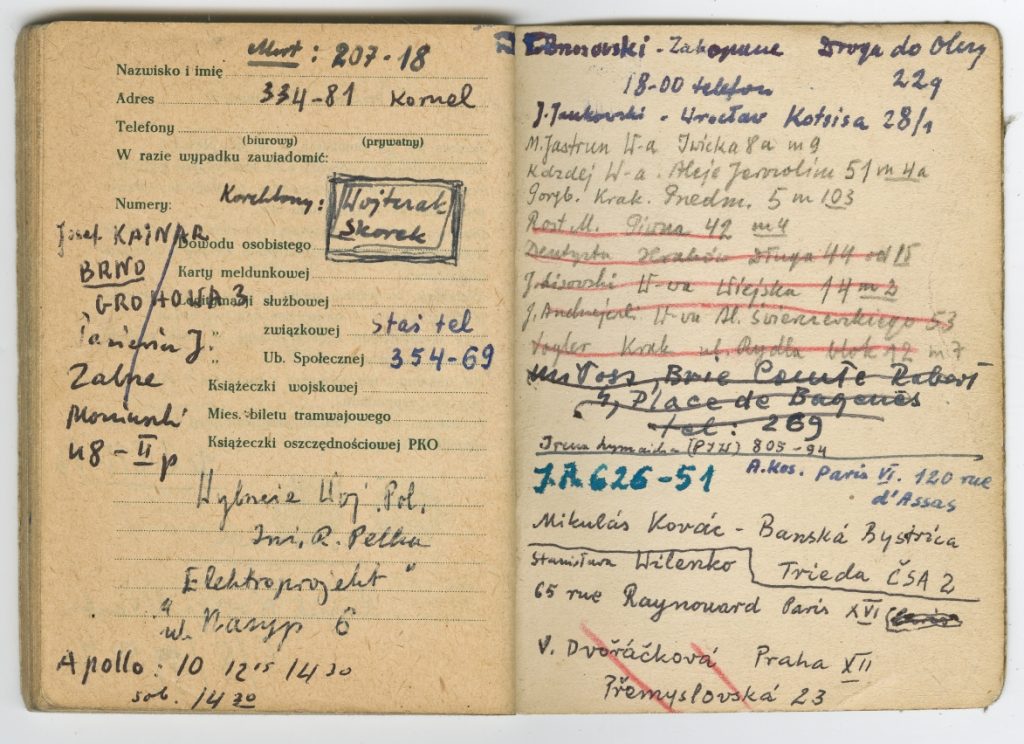 Mort : 207-18
Nazwisko i imię
Adres 334-81 Kornel
Telefony
(biurowy) (prywatny)
W razie wypadku zawiadomić:
Numery: Wojturak
Skorek
Josef KAINAR
Dowodu osobistego
BRNO
Karty meldunkowej
GROHOVA 3
służbowej
" związkowej Staś tel
J.
" Ub. Społecznej 354-69
Zabrze
Książeczki wojskowej
Moniuszki
Mies. biletu tramwajowego
48 - II p
Książeczki oszczędnościowej PKO
Wybrzeże Woj. Pol.
Inż. R. Pelka
"Elektroprojekt"
ul. Nasyp 6
Apollo : 10 12 15 14 30
sob. 14 30
- Zakopane Droga do Olczy
22g
18-00 telefon
J. Jankowski - Wrocław Kotsisa 28/1
M. Jastrun W-a Iwicka 8a m 9
W-a. Aleje Jerozolim 51 m 4a
Krak. Przedm. 5 m 103
Rost. M. Piwna 42 m 4
Dentysta Kraków Długa 44 od II
J. Lisowski W-wa Wiejska 14 m 2
J. Andrzejewski W-wa Al. Świerczewskiego 53
Vogler Krak ul. Rydla blok 12 m 7
Miłosz, Brie Comte Robert
4, Place de Bagenes
tel : 269
Irena Szymańska (PIW) 805-94
J.A. 626-51
A. Kos. Paris VI. 120 rue
d'Assas
Mikuláš Kováč - Banská Bystrica
Trieda ČSA 2
Stanisława Wilenko
65 rue Raynouard Paris XVI
V. Dvořáčková Praha XII
Přemyslovská 23